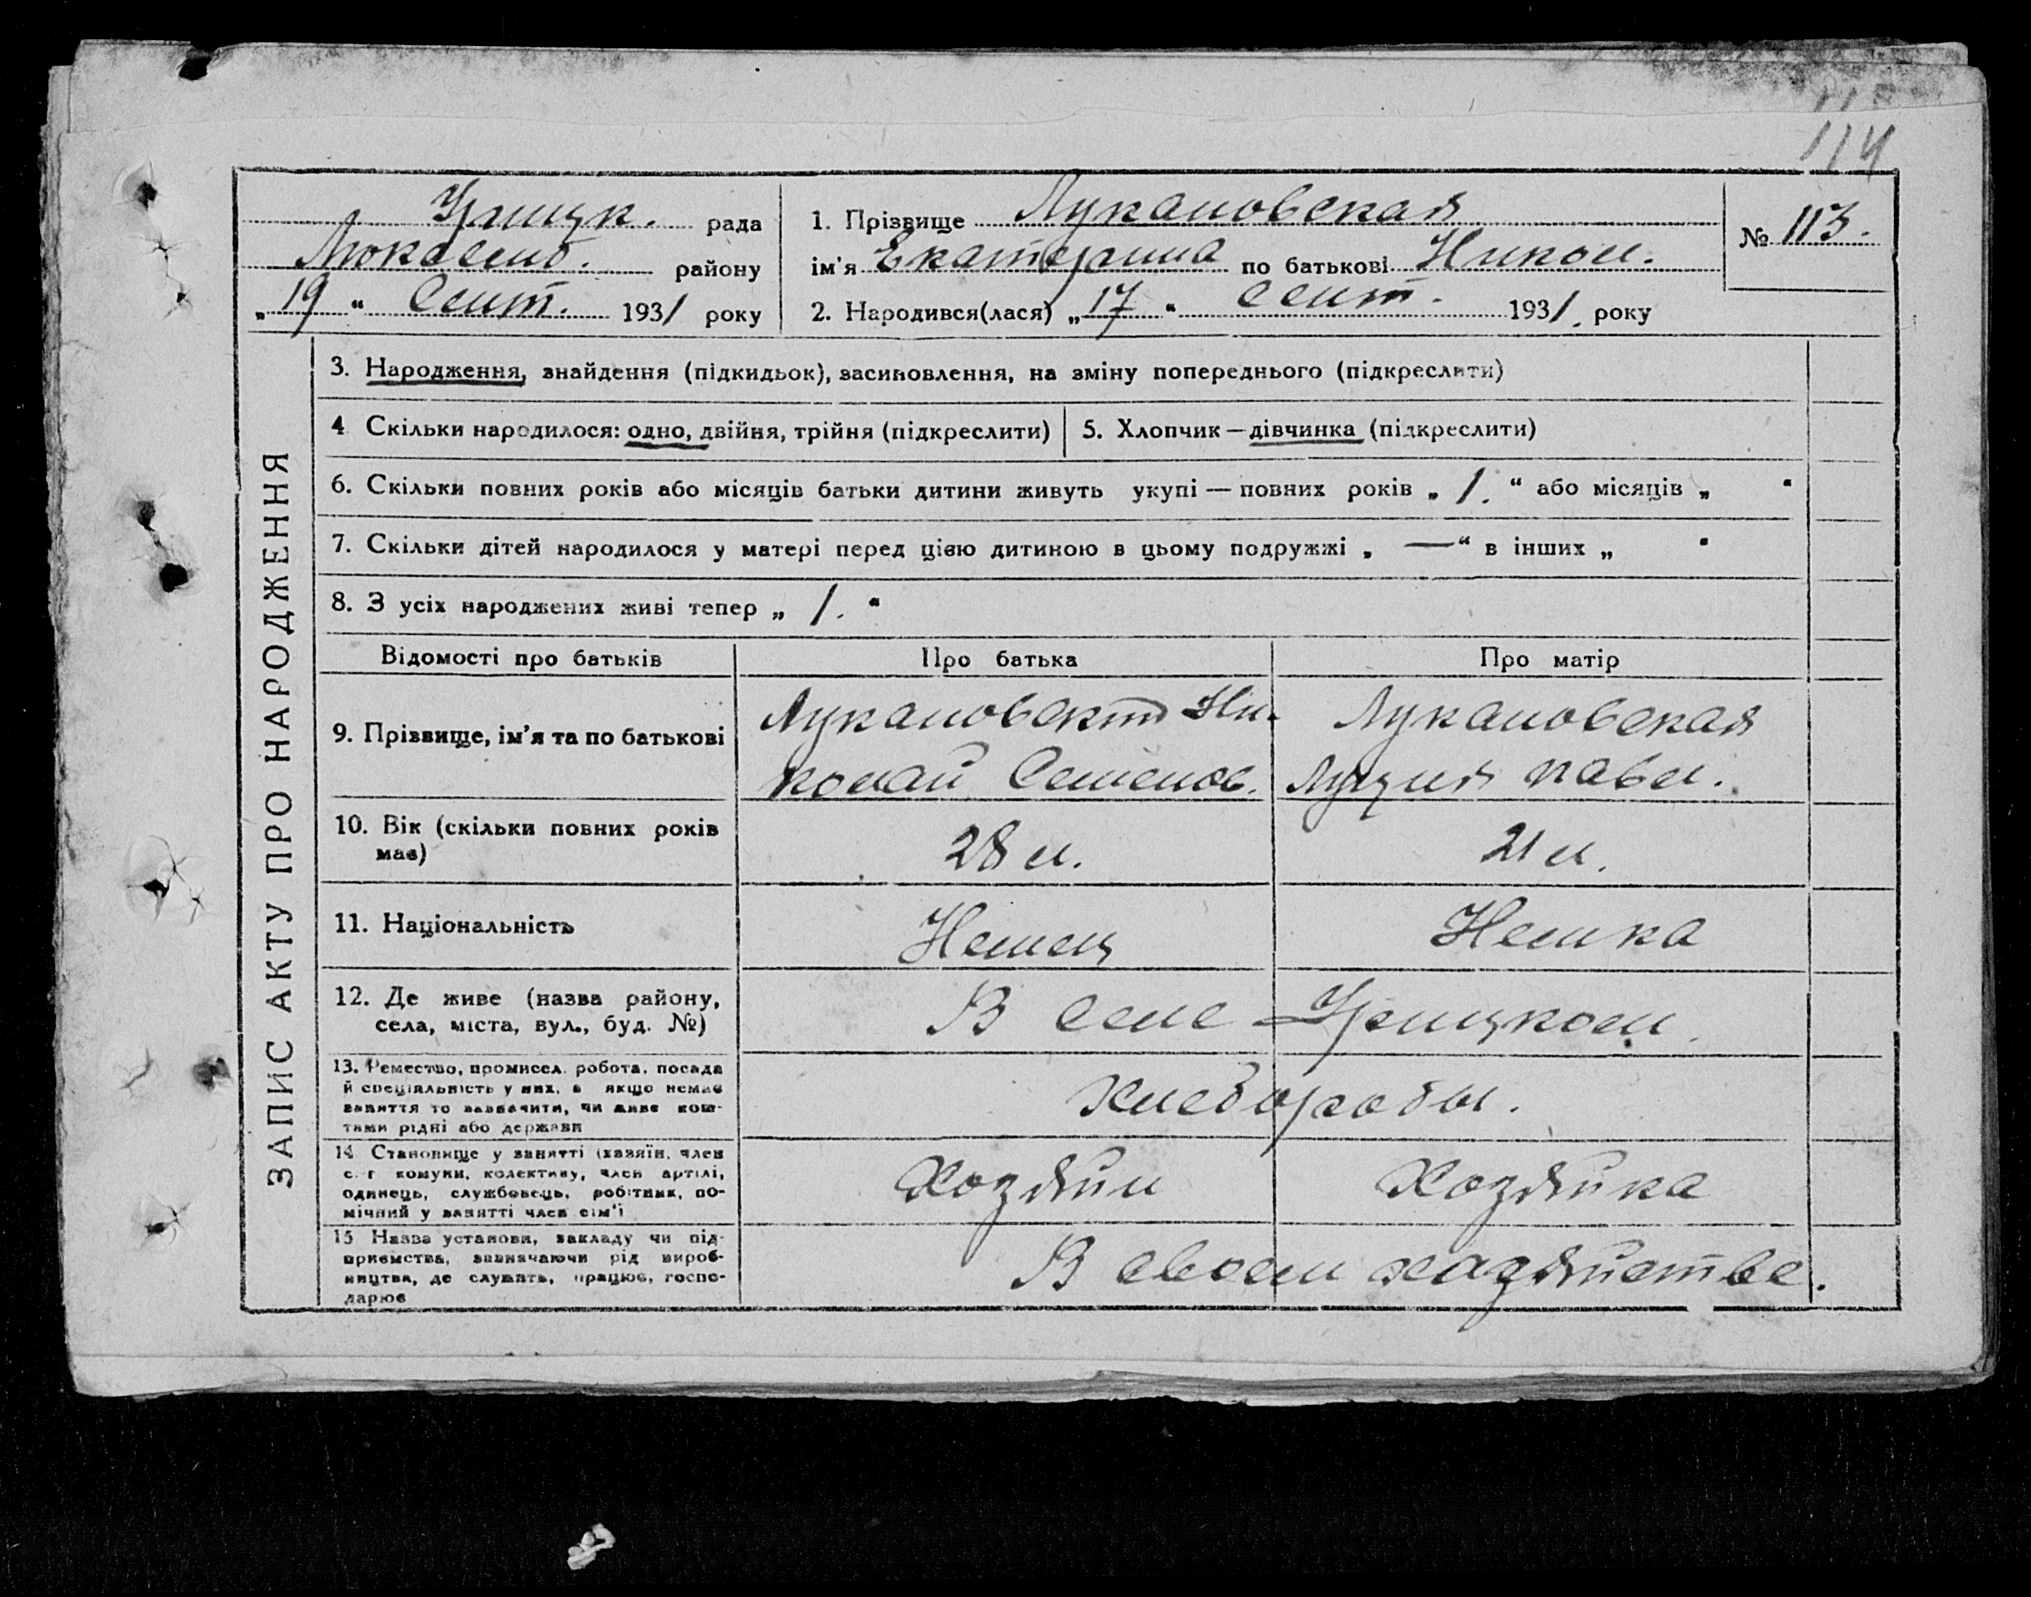 114
Урицк. рада
Люксемб. району
„19“ Сент. 1931 року
1. Прізвище Лукановская
ім'я Екатерина по батькові Никол.
2. Народився(лася) „17“ Сент. 1931 року
№ 113.
ЗАПИС АКТУ ПРО НАРОДЖЕННЯ
3. Народження, знайдення (підкидьок), засиновлення, на зміну попереднього (підкреслити)
4 Скільки народилося: одно, двійня, трійня (підкреслити)
5. Хлопчик — дівчинка (підкреслити)
6. Скільки повних років або місяців батьки дитини живуть укупі — повних років „1.“ або місяців „ “
7. Скільки дітей народилося у матері перед цією дитиною в цьому подружжі „—“ в інших „ “
8. З усіх народжених живі тепер „1.“
Відомості про батьків Про батька Про матір
9. Прізвище, ім'я та по батькові
Лукановский Ни-
колай Семенов.
Лукановская
Луция Павл.
10. Вік (скільки повних років
має)
28 л. 21 л.
11. Національність
Немец Немка
12. Де живе (назва району,
села, міста, вул., буд. №)
В селе Урицком.
13. Ремество, промисел, робота, посада
й спеціяльність у них, а якщо немає
заняття то зазначити, чи живе кош-
тами рідні або держави
Хлеборобы.
14 Становище у занятті (хазяїн, член
с. г комуни, колективу, член артілі,
одинець, службовець, робітник, по-
мічний у занятті член сім'ї
Хозяин Хозяйка
15 Назва установи, закладу чи під-
приємства, зазначаючи рід вироб-
ництва, де служить, працює, госпо-
дарює
В своем хазяйстве.